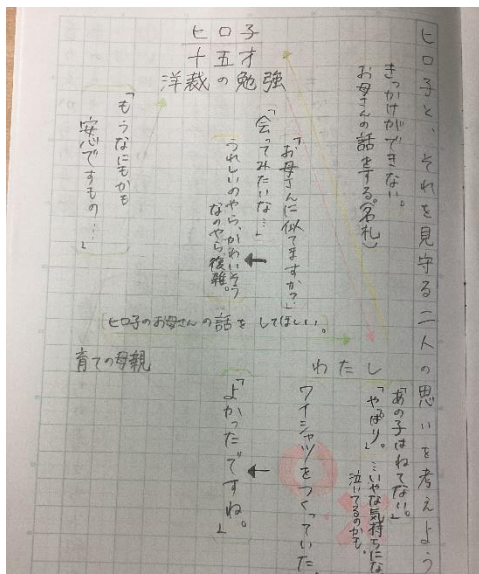 ヒロ子と それを見守る二人の思いを考えよう
きっかけができない。
お母さんの話をする。(名札)
ヒロ子
十五才
洋裁の勉強
「お母さんに似てますか?」
「会ってみたいな…」
うれしいのやら、かわいそう
なのやら、複雑。
「もうなにもかも
安心ですもの…。」
(ヒロ子のお母さんの話をしてほしい。)
わたし
「あの子はねてない。」
「やっぱり。」…いやな気持ちにな
泣いてるのかも。
ワイシャツをつくっていた
「よかったですね。」
育ての母親